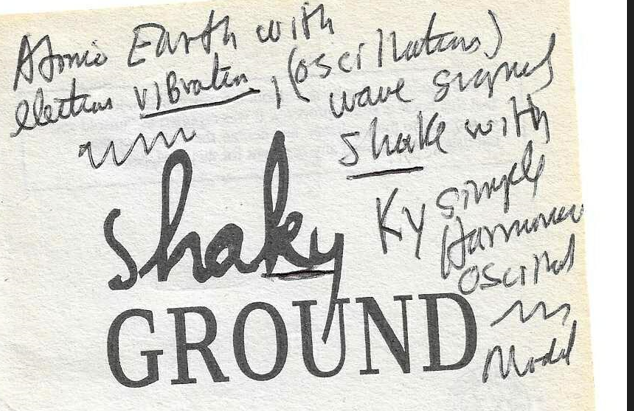 Atomic Earth with
electrons vibration, (oscillations)
wave signal
shake with
Ky simple
Harmonic
oscillat
Model
shaky
GROUND